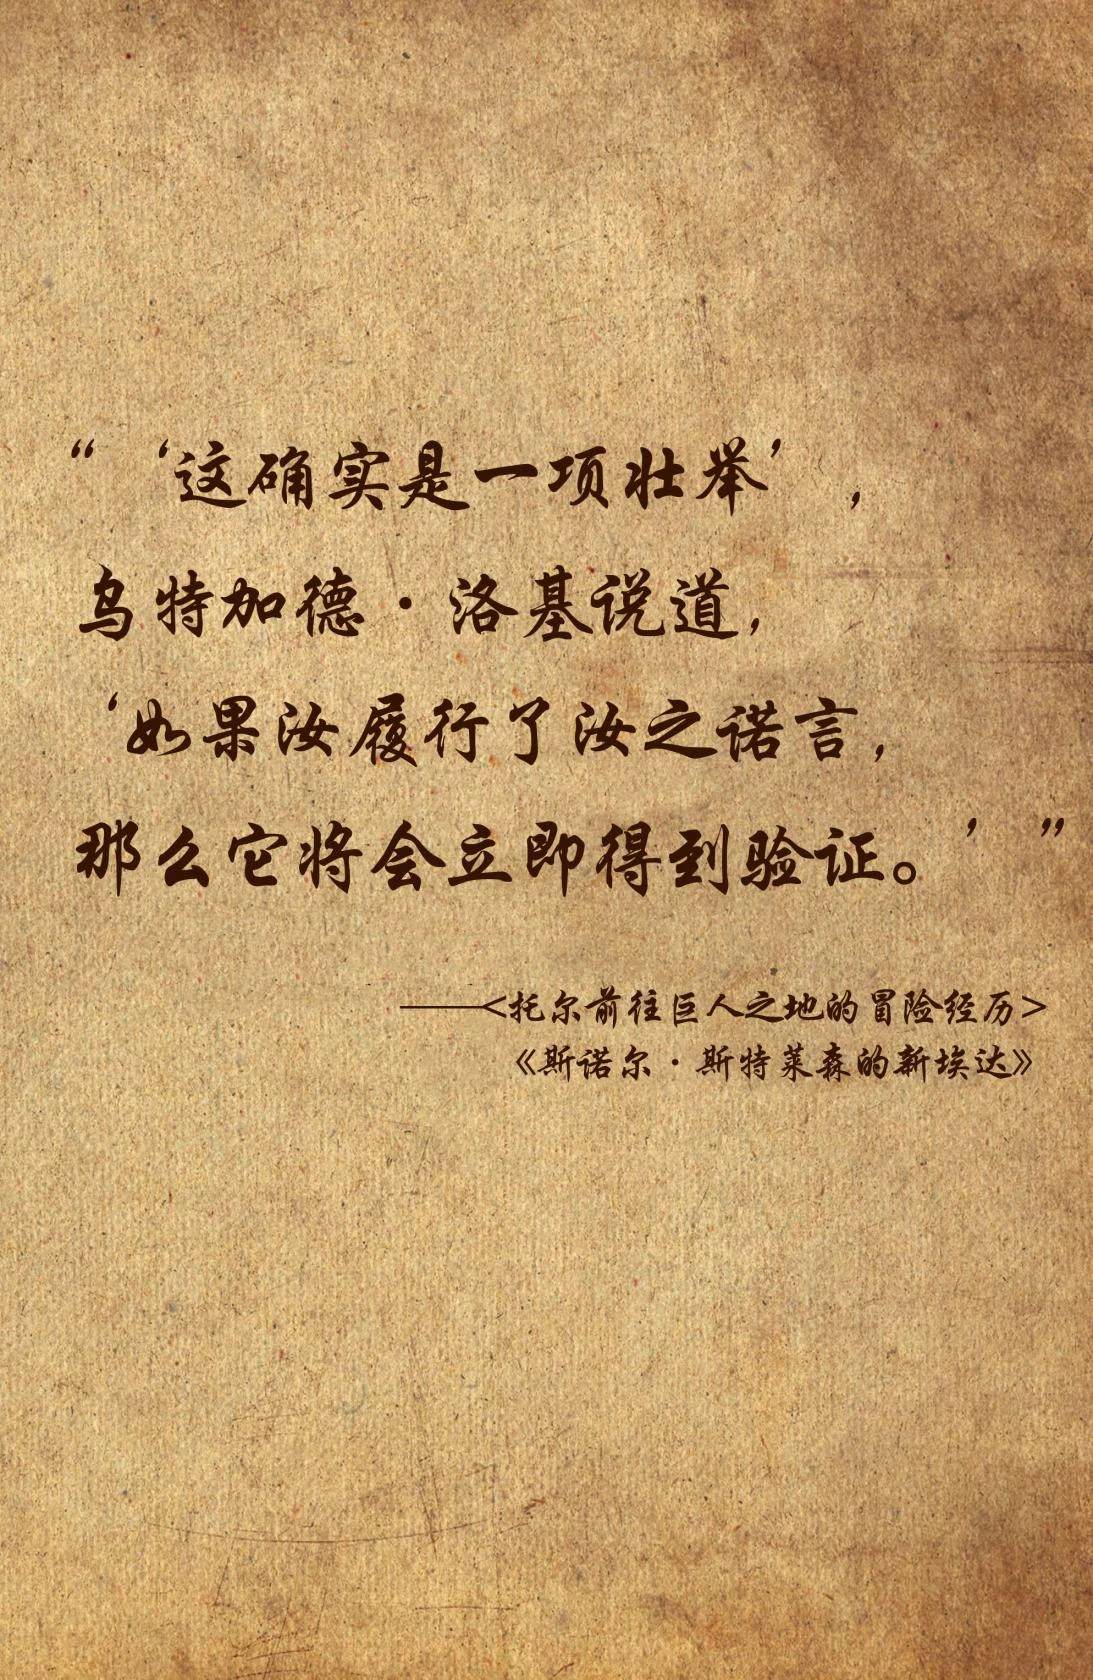 “ ‘这确实是一项壮举’，
乌特加德·洛基说道，
‘如果汝履行了汝之诺言，
那么它将会立即得到验证。’ ”
——<托尔前往巨人之地的冒险经历>
《斯诺尔·斯特莱森的新埃达》